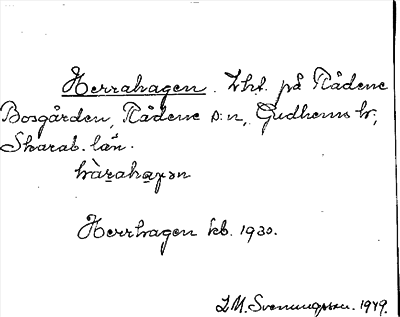 Herrahagen. Lht. på Rådene
Bosgården, Rådene s:n, Gudhems hr;
Skarab. län.
hàrahaɡən
Herrhagen kb. 1930.
I.M. Svenungsson. 1949.